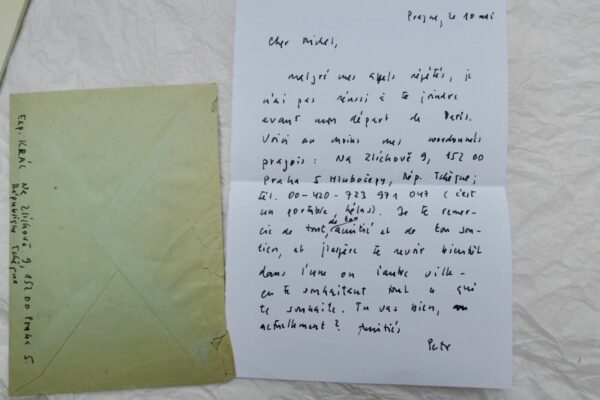 Prague, le 10 mai
Cher Michel,
malgré mes appels répétés, je
n'ai pas réussi à te joindre
avant mon départ de Paris.
Voici au moins mes coordonnées
pragois : Na Zlíchově 9, 152 00
Praha 5 Hlubočepy, Rép. Tchèque ;
tél. 00-420-723 971 047 (c'est
un portable, hélas). Je te remer-
cie de tout, de ton amitié et de ton sou-
tien, et j'espère te revoir bientôt
dans l'une ou l'autre ville -
en te souhaitant tout ce qui
te souhaite. Tu vas bien,
actuellement ? Amitiés
Petr
Exp. KRÁL Na Zlíchově 9, 152 00 Praha 5
République Tchèque